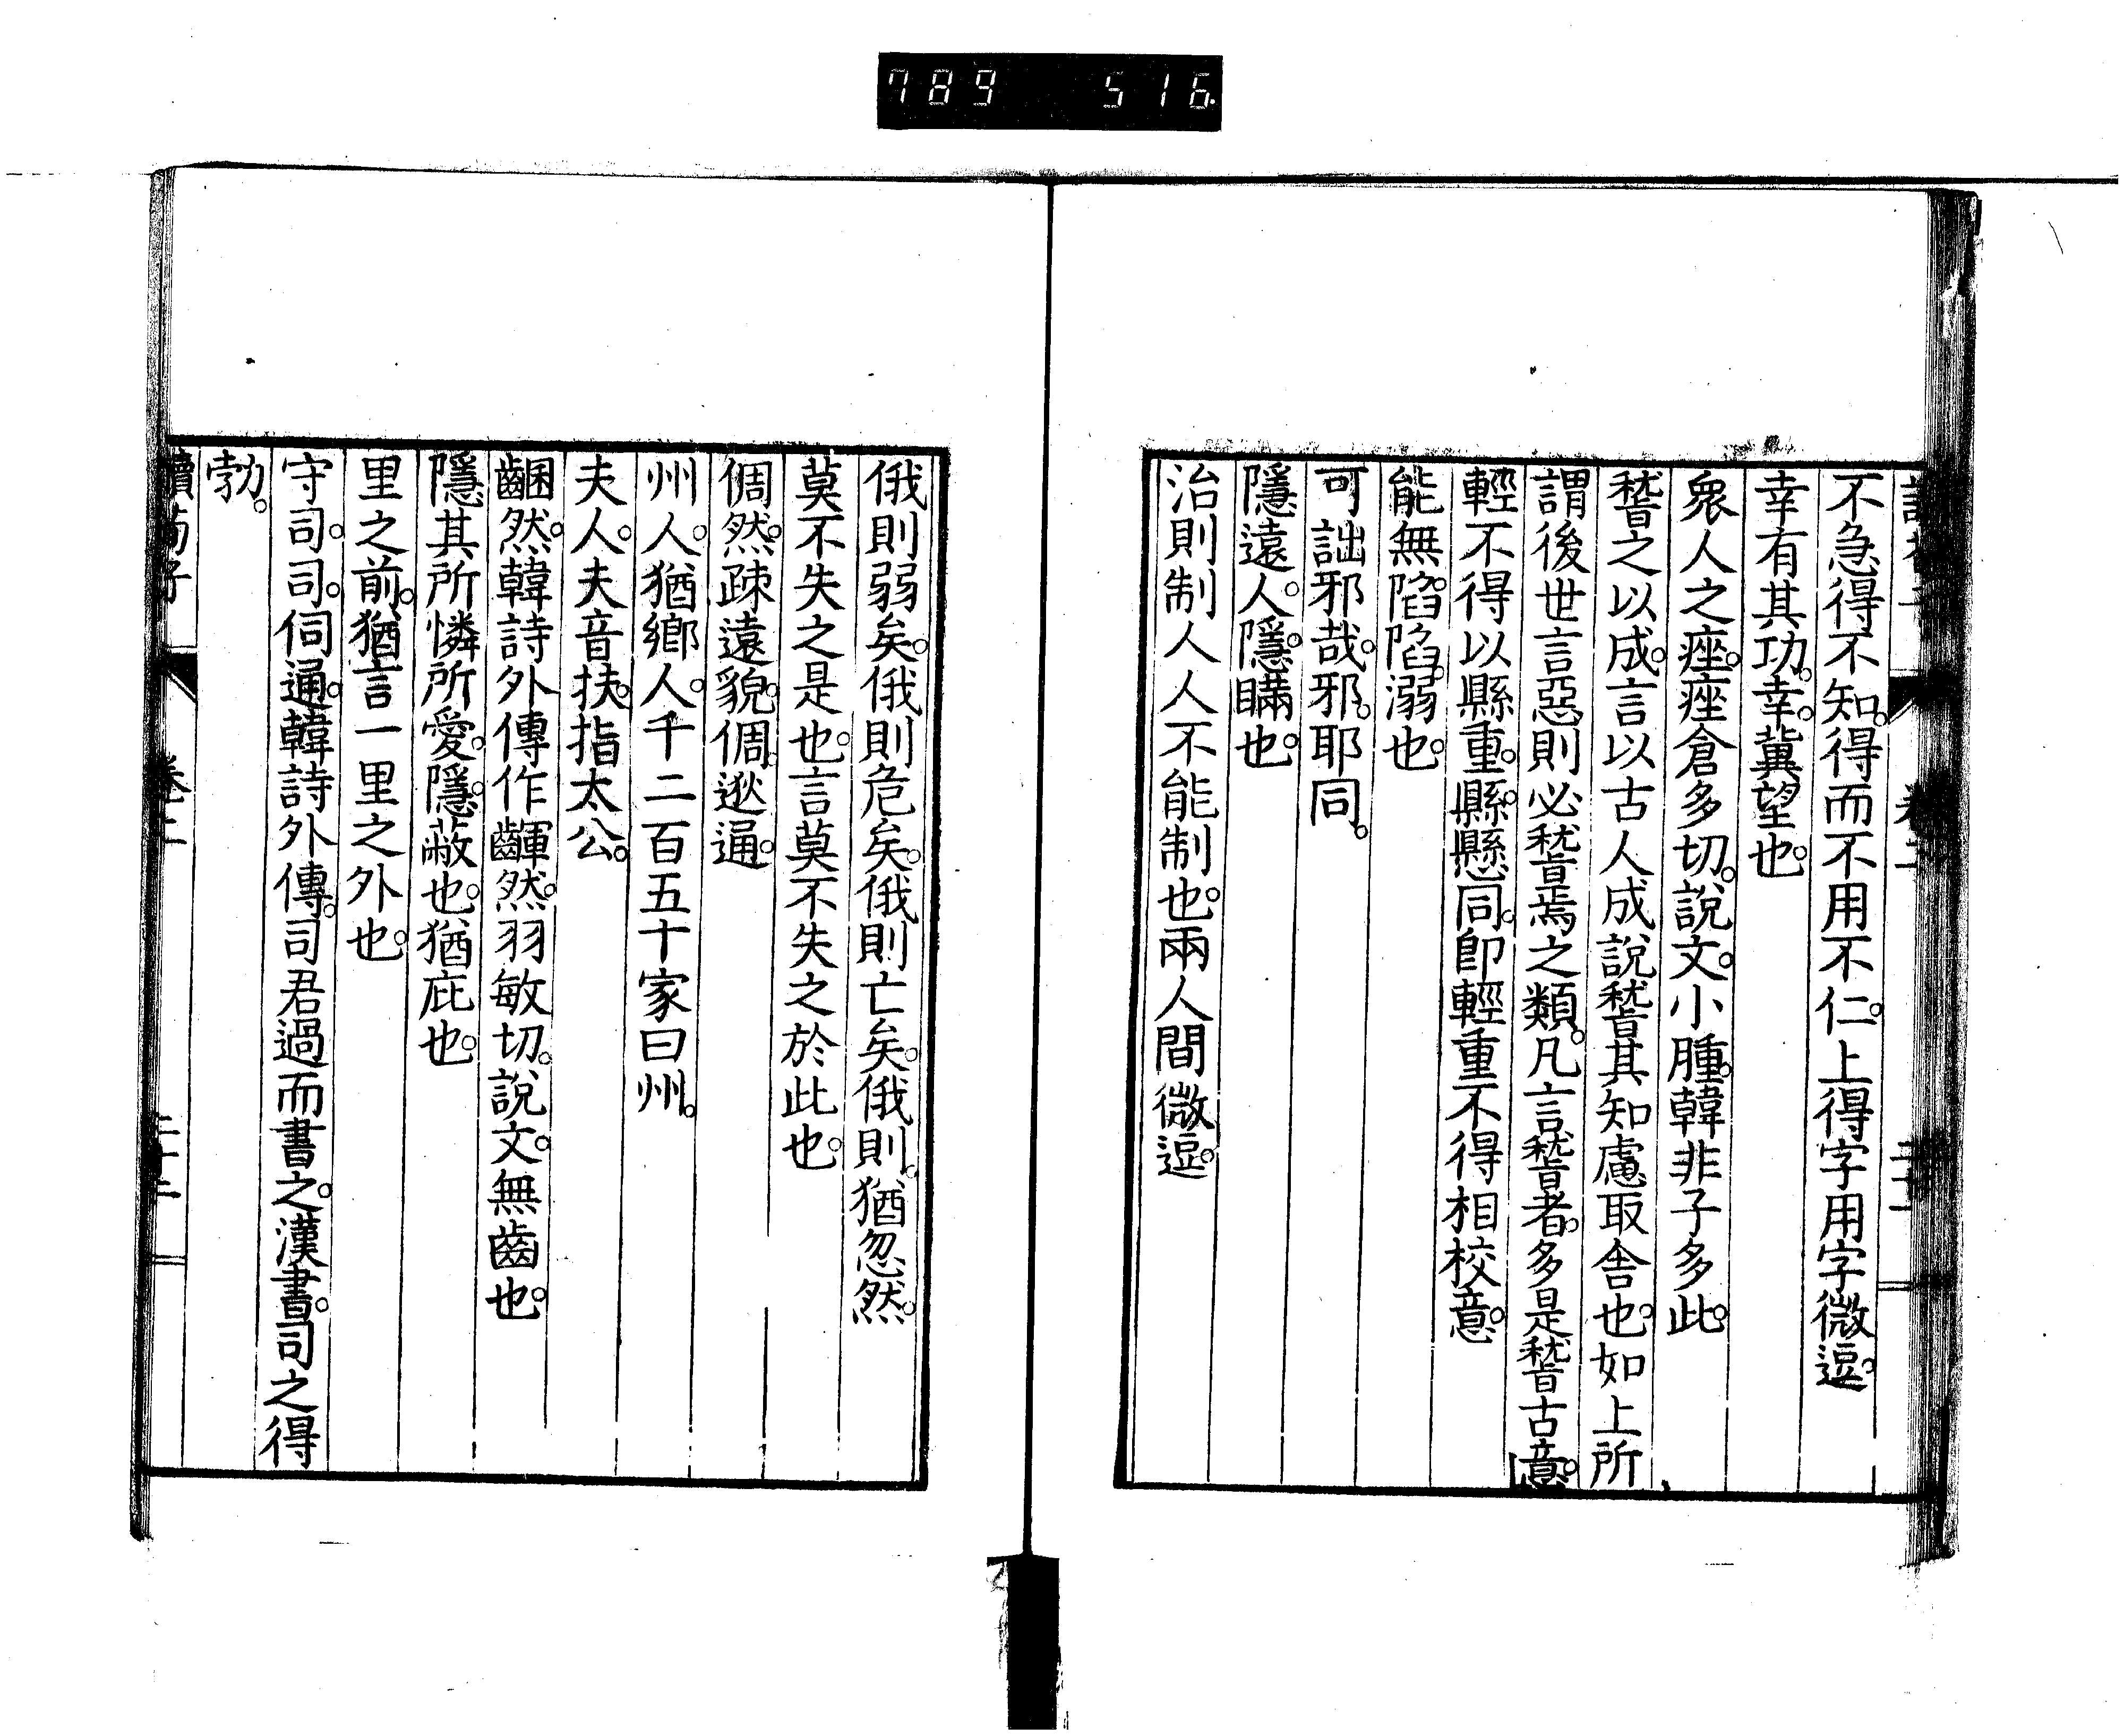 789 516
不急得不知。得而不用不仁。上得字用字微逗。
幸有其功。幸。冀望也。
衆人之痤。痤倉多切。說文。小腫。韓非子多此。
稽之以成。言以古人成說稽其知慮取舍也。如上所
謂後世言惡則必稽焉之類。凡言稽者。多是稽古意。
輕不得以縣重。縣。懸同。卽輕重不得相校意。
能無陷。陷。溺也。
可詘邪哉。邪。耶同。
隱遠人。隱。瞞也。
治則制人人不能制也。兩人間微逗。
俄則弱矣。俄則危矣。俄則亡矣。俄則。猶忽然。
莫不失之是也。言莫不失之於此也。
倜然。疎遠貌。倜。逖通。
州人。猶鄉人。千二百五十家曰州。
夫人。夫音扶。指太公。
齫然。韓詩外傳作齳然。羽敏切。說文。無齒也。
隱其所憐所愛。隱。蔽也。猶庇也。
里之前。猶言一里之外也。
守司。司。伺通。韓詩外傳。司君過而書之。漢書。司之得
勃。
讀荀子 卷二 二十二